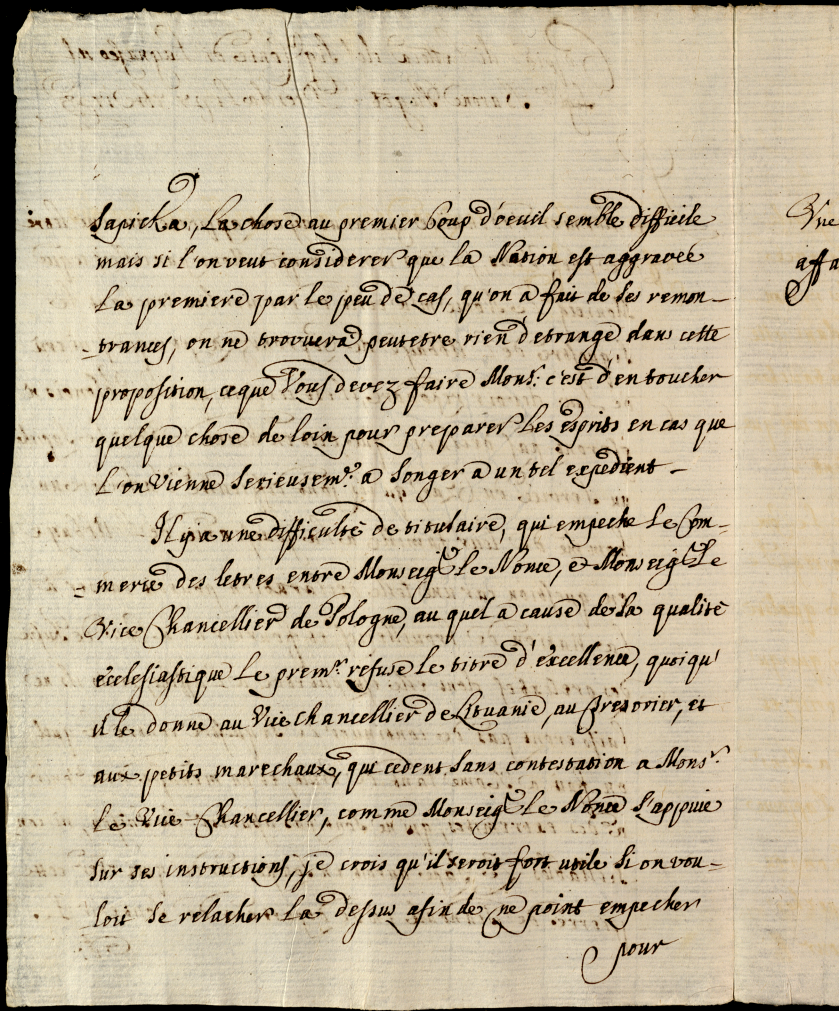 Sapieha, La chose au premier Coup d'oeuil semble difficile
mais si l'on veut considerer que la Nation est aggravée
La premiere par le peu de cas, qu'on a fait de ses remon-
trances, on ne trovuera peutetre rien d'etrange dans cette
proposition, ceque Vous devez faire Mons.r c'est d'en toucher
quelque chose de loin pour preparer Les esprits en cas que
L'on Vienne Serieusem.t a Songer a un tel expedient -
Il y a une difficulté de titulaire, qui empeche Le Com-
merce des letres entre Monseig.r Le Nonce, et Monseig.r Le
Vice Chancellier de Pologne, au quel a cause de Sa qualité
ecclesiastique Le prem.r refuse Le titre d'excellence, quoiqu'
il le donne au Vice chancellier de Lituanie, au Tresorier, et
aux petits marechaux, qui cedent Sans contestation a Mons.r
Le Vice-Chancellier, comme Monseig.r Le Nonce S'appuie
Sur ses instructions, je crois qu'il seroit fort utile Si on vou-
loit Se relacher La dessus afin de ne point empecher
pour
Vne
affa